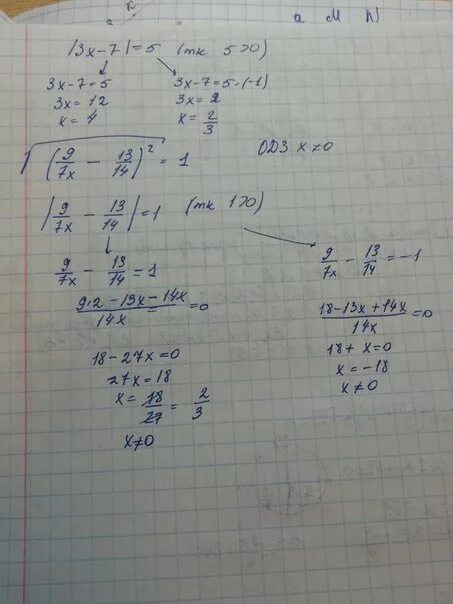 а M N
|3x-7|=5 (тк 5>0)
3x-7=5
3x=12
x=4
3x-7=5·(-1)
3x=2
x=2/3
√(9/7x - 13/14)² = 1 ОДЗ x≠0
|9/7x - 13/14|=1 (тк 1>0)
9/7x - 13/14 = 1
(9·2-13x-14x)/14x = 0
18-27x=0
27x=18
x=18/27=2/3
x≠0
9/7x - 13/14 = -1
(18-13x+14x)/14x=0
18+x=0
x=-18
x≠0